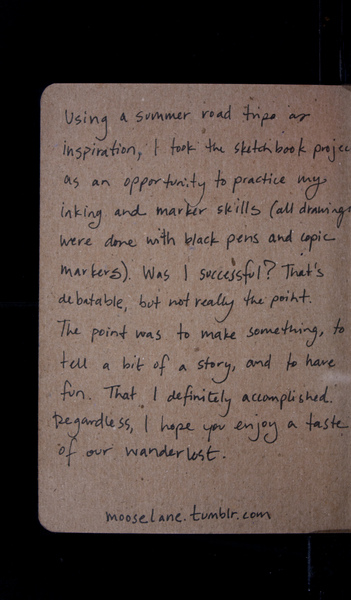 Using a summer road trip as
inspiration, I took the sketchbook projec
as an opportunity to practice my
inking and marker skills (all drawings
were done with black pens and copic
markers). Was I successful? That's
debatable, but not really the point.
The point was to make something, to
tell a bit of a story, and to have
fun. That I definitely accomplished.
Regardless, I hope you enjoy a taste
of our wanderlust.
mooselane.tumblr.com